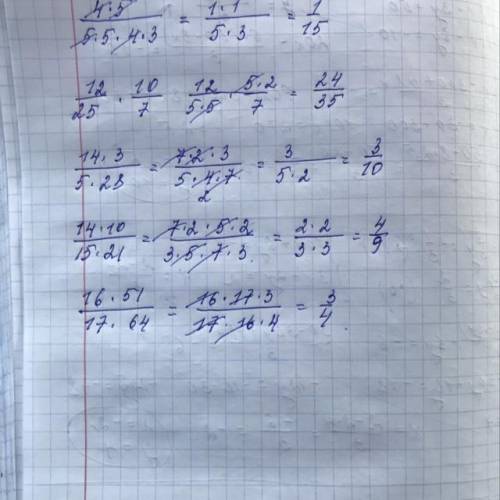 4·5/5·5·4·3 = 1·1/5·3 = 1/15
12/25 · 10/7 12/5·5 · 5·2/7 = 24/35
14·3/5·28 = 7·2·3/5·4·7 2 = 3/5·2 = 3/10
14·10/15·21 = 7·2·5·2/3·5·7·3 = 2·2/3·3 = 4/9
16·51/17·64 = 16·17·3/17·16·4 = 3/4